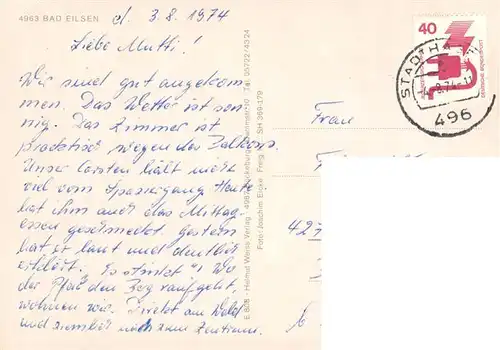 4963 BAD EILSEN
d. 3.8.1974
Liebe Mutti!
Wir sind gut angekom-
men. Das Wetter ist son-
nig. Das Zimmer ist
praktisch wegen des Balkons.
Unser Carsten hält nicht
viel vom Spaziergang. Heute
hat ihm auch das Mittag-
essen geschmeckt. Gestern
hat er laut und deutlich
erklärt. Es stinkt! Wo
der Pfad den Berg raufgeht,
wohnen wir. Direkt am Wald
und ziemlich nah zum Zentrum.
E 828 - Helmut Weiss Verlag · 4967 Bückeburg · Tel. 05722/4324
Foto: Joachim Eicke · Freig. SH 369-179
40
DEUTSCHE BUNDESPOST
STADTHA
496
Frau
427